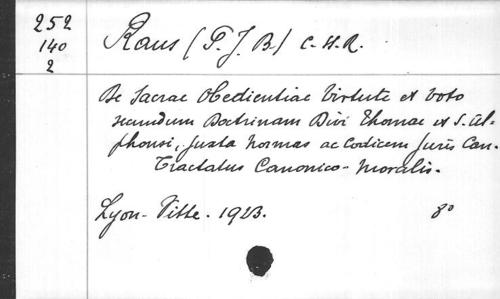 252
140
2
Raus (P. J. B.) C. SS. R.
De Sacrae Obedientiae Virtute et Voto
secundum Doctrinam Divi Thomae et S. Al-
phonsi, juxta normas ac Codicem Juris Can.
Tractatus Canonico-Moralis.
Lyon - Vitte. 1923. 8°